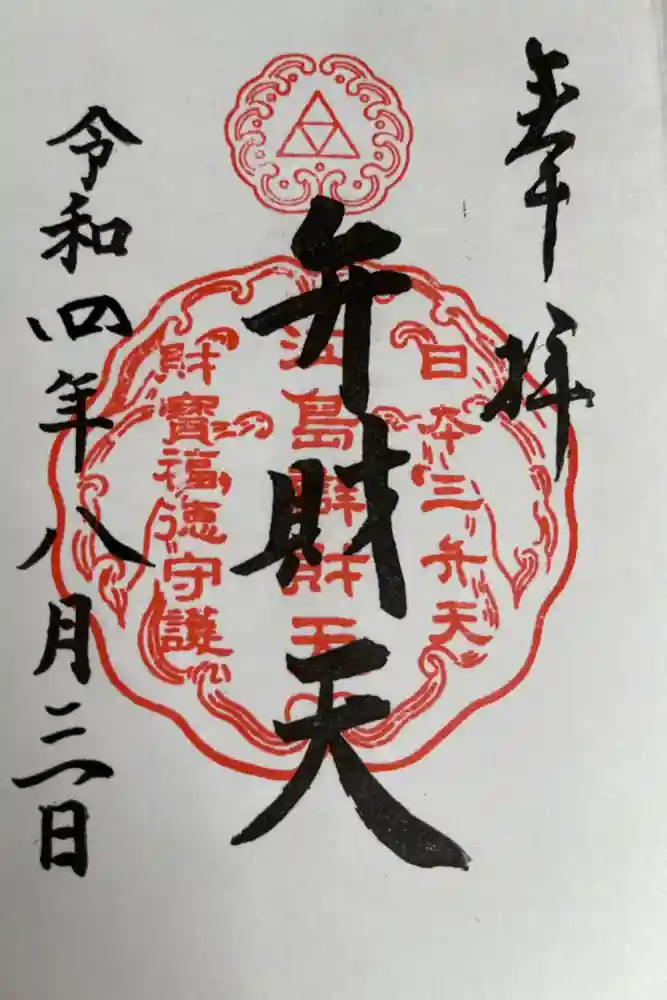 奉拝
日本三弁天
江島辨財天
弁財天
財寳福徳守護
令和四年八月三日